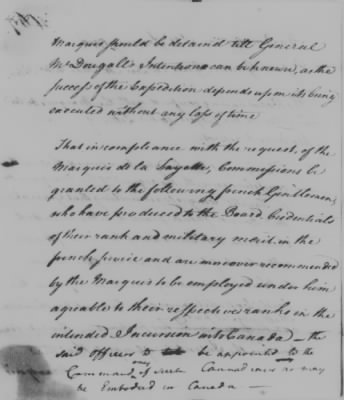 Marquis should be detained till General
McDougall's Intentions can be known, as the
success of the Expedition depends upon its being
executed without any loss of time
That in compliance with the request, of the
Marquis de la Fayette, Commissions be
granted to the following french Gentlemen,
who have produced to the Board Credentials
of their rank and military merit in the
french service and are moreover recommended
by the Marquis to be employed under him
agreable to their respective ranks in the
intended Incursion into Canada — the
said officers to be appointed to the
Command of such Canadians as may
be Embodied in Canada —